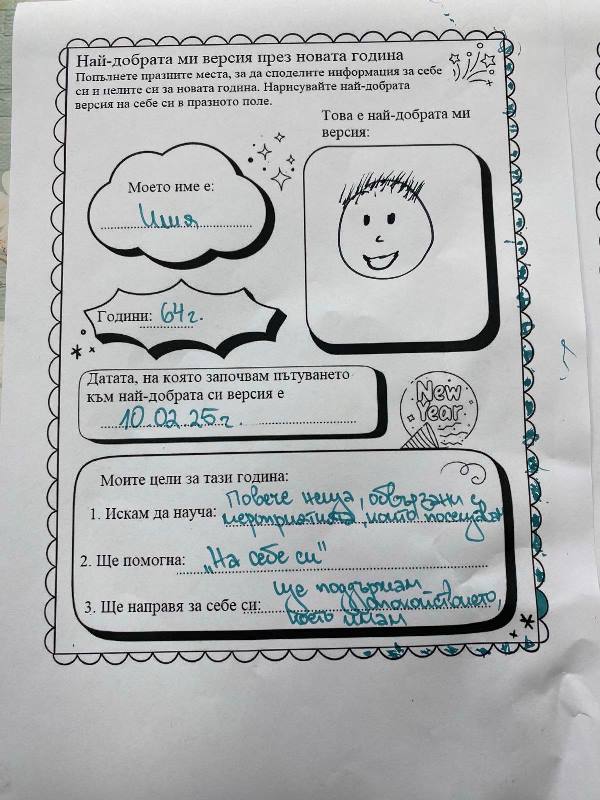 Най-добрата ми версия през новата година
Попълнете празните места, за да споделите информация за себе
си и целите си за новата година. Нарисувайте най-добрата
версия на себе си в празното поле.
Това е най-добрата ми
версия:
Моето име е:
Илия
Години: 64 г.
Датата, на която започвам пътуването
към най-добрата си версия е
10.02.25г.
New
Year
Моите цели за тази година:
1. Искам да науча: Повече неща, обвързани с
мероприятията, които посещавам
2. Ще помогна: „На себе си"
3. Ще направя за себе си: Ще поддържам
спокойствието,
което имам